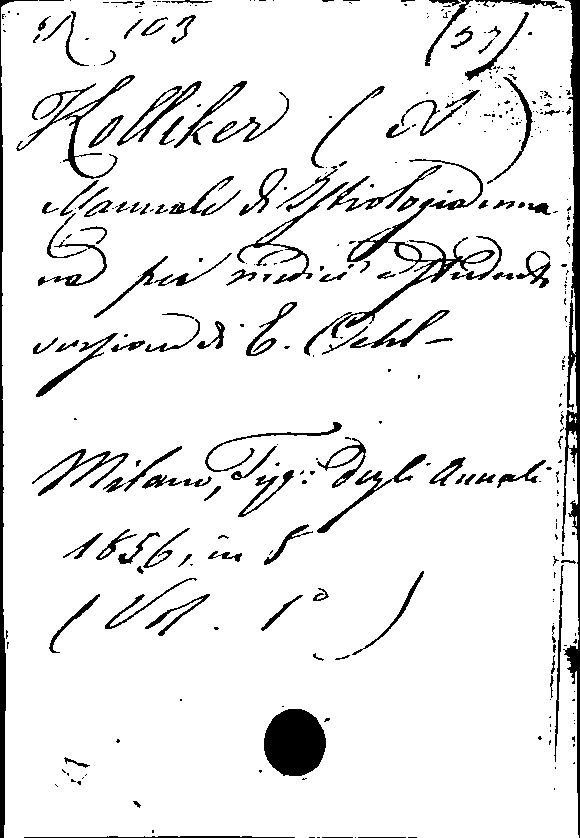 R. 103 (57)
Kolliker (A)
Manuale di Istiologia uma
na pei medici e studenti
versione di E. Oehl-
Milano, Tip: degli Annali
1856, in 8
(Vol. 1°)